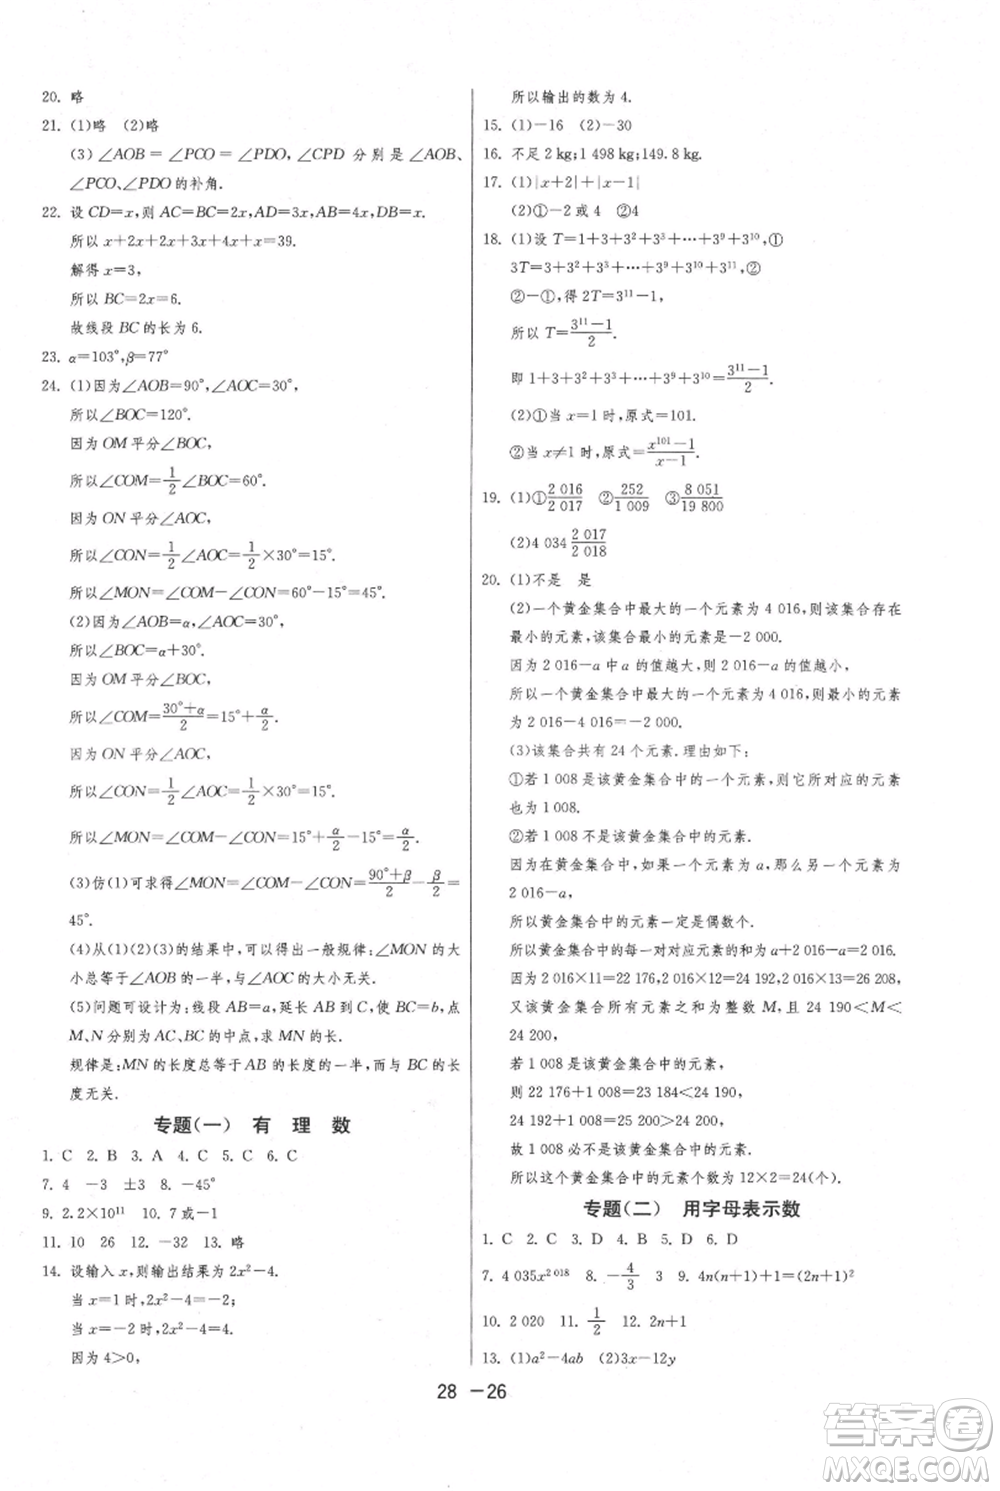 20. 略
21. (1)略 (2)略
(3)∠AOB=∠PCO=∠PDO,∠CPD 分别是∠AOB、
∠PCO、∠PDO的补角.
22. 设 CD=x,则 AC=BC=2x,AD=3x,AB=4x,DB=x.
所以 x+2x+2x+3x+4x+x=39.
解得 x=3,
所以 BC=2x=6.
故线段 BC 的长为 6.
23. α=103°,β=77°
24. (1)因为∠AOB=90°,∠AOC=30°,
所以∠BOC=120°.
因为 OM 平分∠BOC,
所以∠COM=1/2∠BOC=60°.
因为 ON 平分∠AOC,
所以∠CON=1/2∠AOC=1/2×30°=15°.
所以∠MON=∠COM-∠CON=60°-15°=45°.
(2)因为∠AOB=α,∠AOC=30°,
所以∠BOC=α+30°.
因为 OM 平分∠BOC,
所以∠COM=(30°+α)/2=15°+α/2.
因为 ON 平分∠AOC,
所以∠CON=1/2∠AOC=1/2×30°=15°.
所以∠MON=∠COM-∠CON=15°+α/2-15°=α/2.
(3)仿(1)可求得∠MON=∠COM-∠CON=(90°+β)/2-β/2=
45°.
(4)从(1)(2)(3)的结果中,可以得出一般规律:∠MON的大
小总等于∠AOB的一半,与∠AOC的大小无关.
(5)问题可设计为:线段 AB=a,延长 AB 到 C,使 BC=b,点
M、N 分别为 AC、BC 的中点,求 MN 的长.
规律是:MN 的长度总等于 AB 的长度的一半,而与 BC 的长
度无关.
专题(一) 有 理 数
1. C 2. B 3. A 4. C 5. C 6. C
7. 4 -3 ±3 8. -45°
9. 2.2×10¹¹ 10. 7 或-1
11. 10 26 12. -32 13. 略
14. 设输入 x,则输出结果为 2x²-4.
当 x=1 时,2x²-4=-2;
当 x=-2 时,2x²-4=4.
因为 4>0,
所以输出的数为 4.
15. (1)-16 (2)-30
16. 不足 2 kg;1 498 kg;149.8 kg.
17. (1)|x+2|+|x-1|
(2)①-2或 4 ②4
18. (1)设 T=1+3+3²+3³+…+3⁹+3¹⁰,①
3T=3+3²+3³+…+3⁹+3¹⁰+3¹¹,②
②-①,得 2T=3¹¹-1,
所以 T=(3¹¹-1)/2.
即 1+3+3²+3³+…+3⁹+3¹⁰=(3¹¹-1)/2.
(2)①当 x=1 时,原式=101.
②当 x≠1 时,原式=(x¹⁰¹-1)/(x-1).
19. (1)①2 016/2 017 ②252/1 009 ③8 051/19 800
(2)4 034 2 017/2 018
20. (1)不是 是
(2)一个黄金集合中最大的一个元素为 4 016,则该集合存在
最小的元素,该集合最小的元素是-2 000.
因为 2 016-a 中 a 的值越大,则 2 016-a 的值越小,
所以一个黄金集合中最大的一个元素为 4 016,则最小的元素为
2 016-4 016=-2 000.
(3)该集合共有 24 个元素.理由如下:
①若 1 008 是该黄金集合中的一个元素,则它所对应的元素
也为 1 008.
②若 1 008 不是该黄金集合中的元素.
因为在黄金集合中,如果一个元素为 a,那么另一个元素为
2 016-a,
所以黄金集合中的元素一定是偶数个.
所以黄金集合中的每一对对应元素的和为 a+2 016-a=2 016.
因为 2 016×11=22 176,2 016×12=24 192,2 016×13=26 208,
又该黄金集合所有元素之和为整数 M,且 24 190<M<
24 200,
若 1 008 是该黄金集合中的元素,
则 22 176+1 008=23 184<24 190,
24 192+1 008=25 200>24 200,
故 1 008 必不是该黄金集合中的元素.
所以这个黄金集合中的元素个数为 12×2=24(个).
专题(二) 用字母表示数
1. C 2. C 3. D 4. D 5. D 6. D
7. 4 035x²⁰¹⁸ 8. -4/3 3 9. 4n(n+1)+1=(2n+1)²
10. 2 020 11. 1/2 12. 2n+1
13. (1)a²-4ab (2)3x-12y
28 -26
答案卷
MXQE.COM